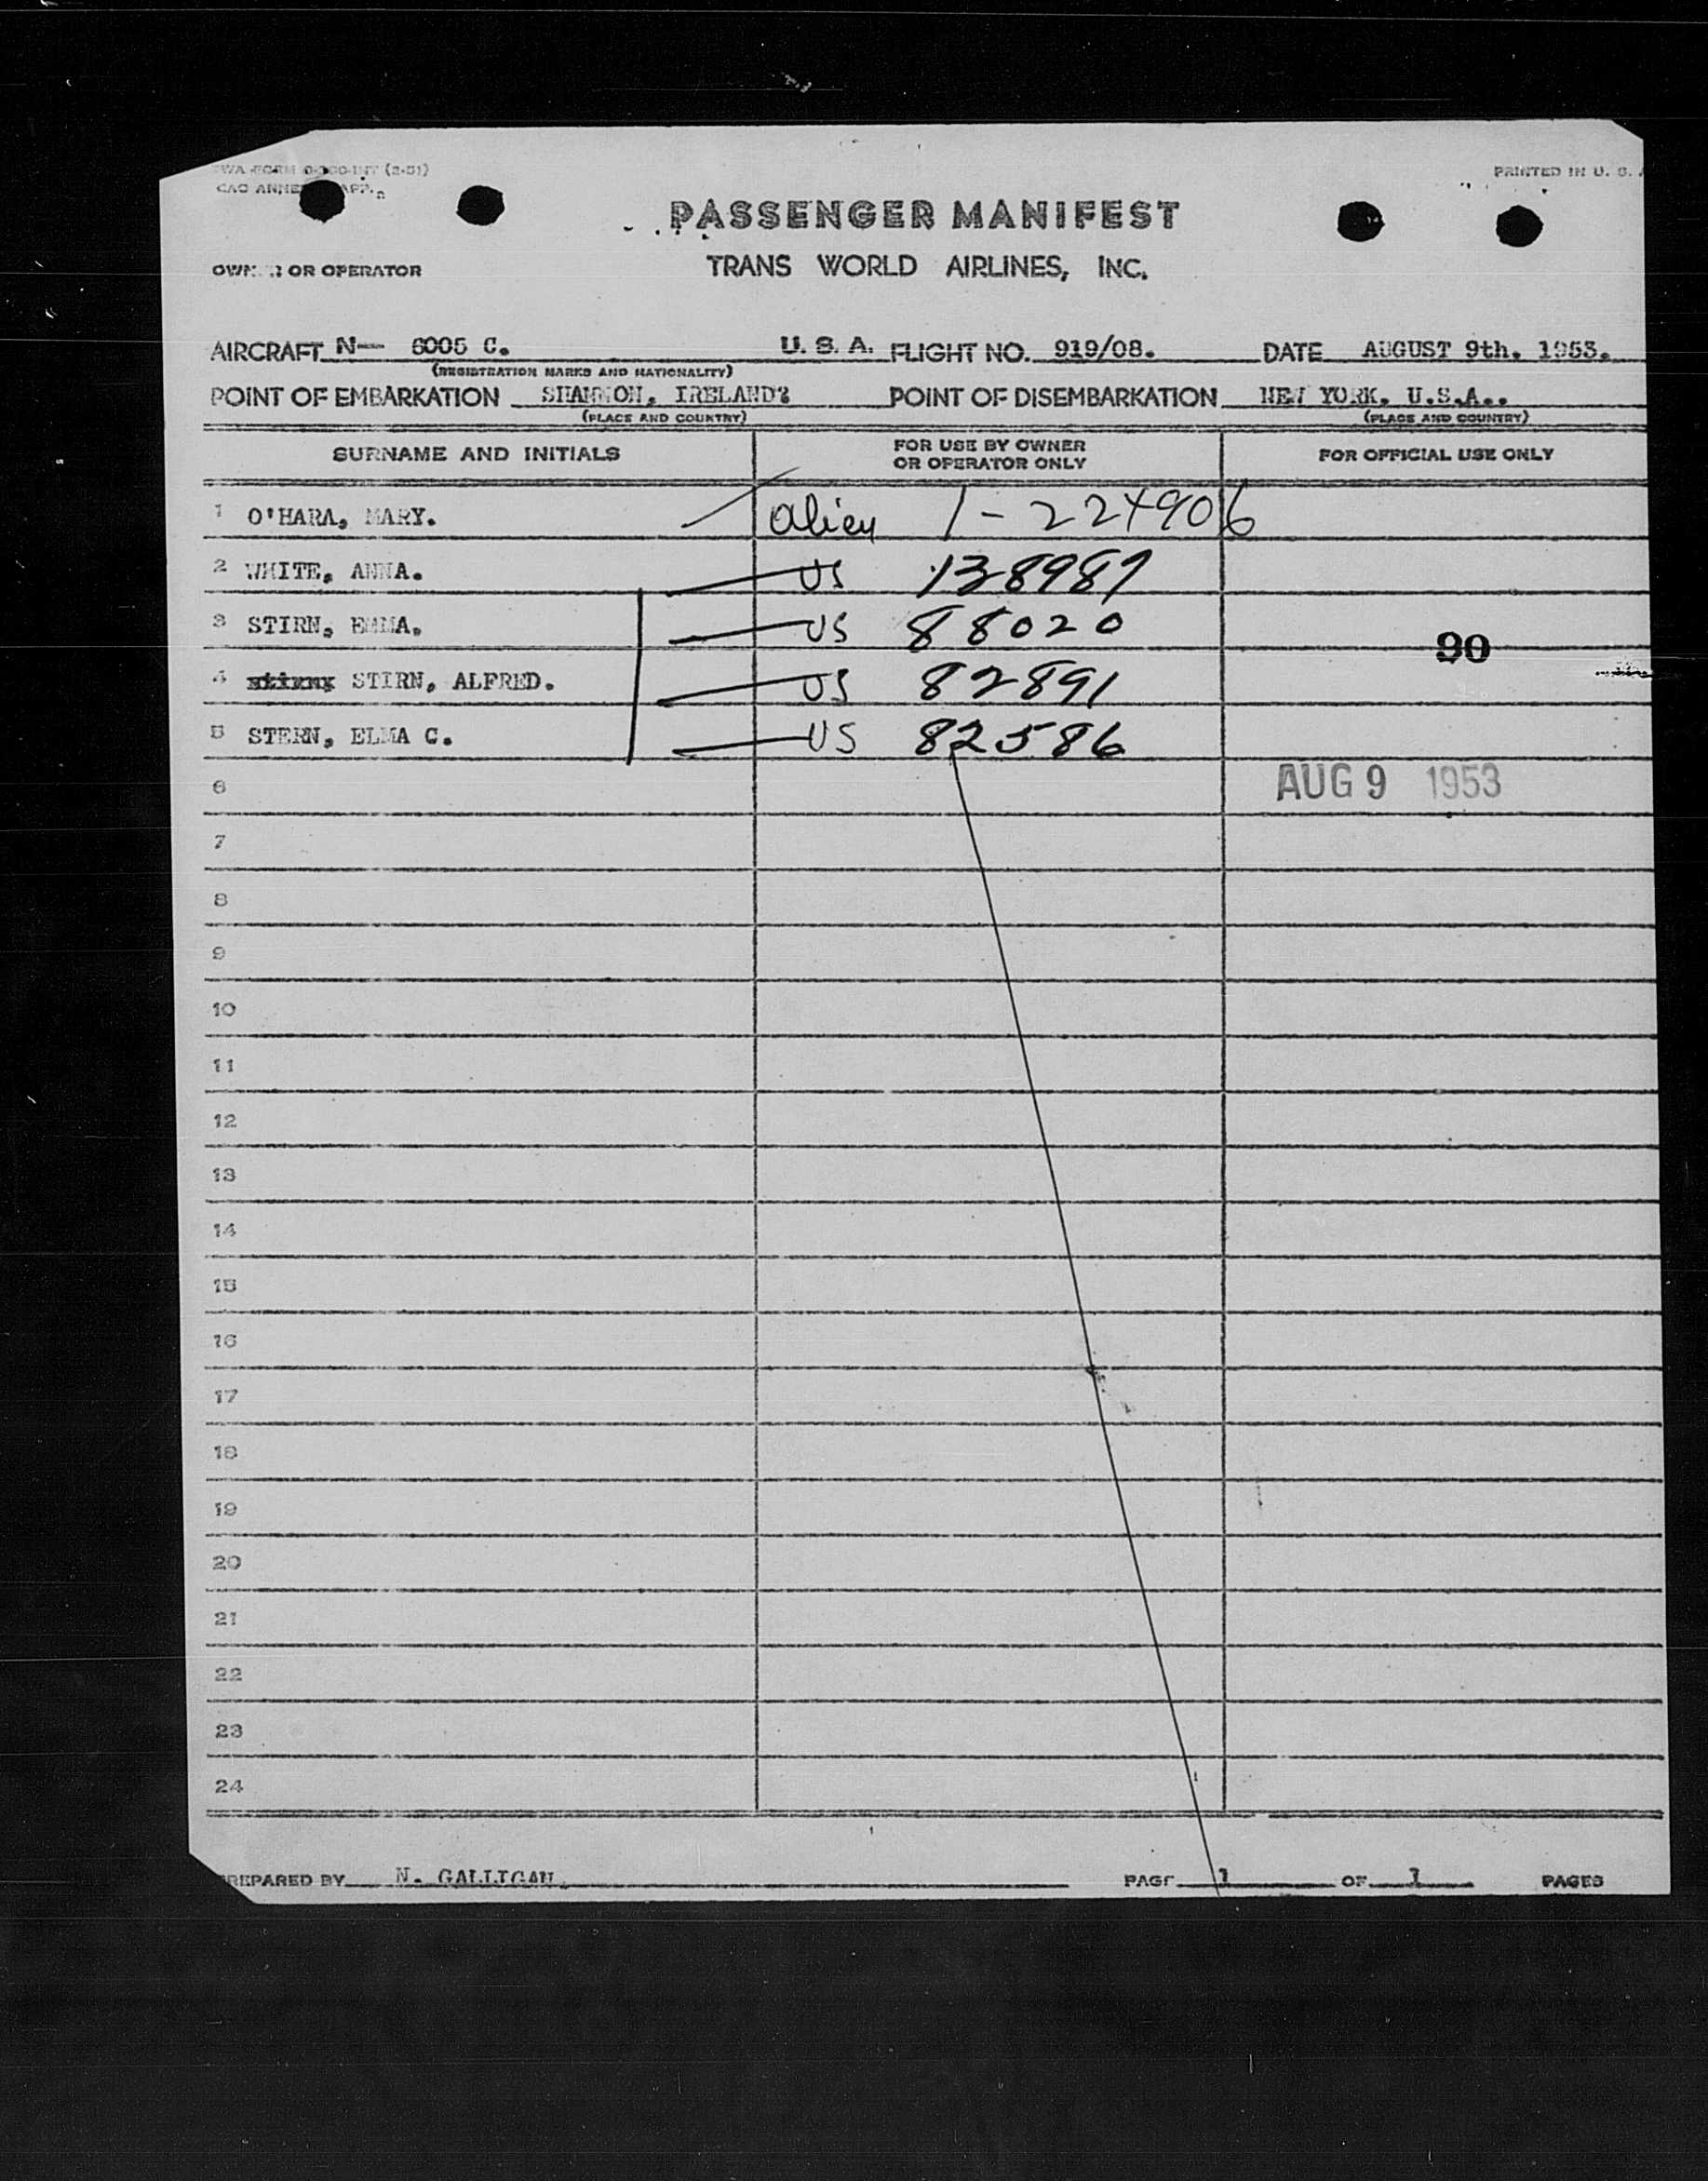 TWA FORM (2-51)
PRINTED IN U. S.
PASSENGER MANIFEST
OR OPERATOR
TRANS WORLD AIRLINES, INC.
AIRCRAFT N— 6005 C. U. S. A. FLIGHT NO. 919/08. DATE AUGUST 9th. 1953.
(REGISTRATION MARKS AND NATIONALITY)
POINT OF EMBARKATION SHANNON, IRELAND? POINT OF DISEMBARKATION NEW YORK. U.S.A..
(PLACE AND COUNTRY) (PLACE AND COUNTRY)
SURNAME AND INITIALS FOR USE BY OWNER OR OPERATOR ONLY FOR OFFICIAL USE ONLY
1 O'HARA, MARY. alien 1-224906
2 WHITE, ANNA. US 138989
3 STIRN, EMMA. US 88020
90
4 STIRN, ALFRED. US 82891
5 STERN, ELMA C. US 82586
6 AUG 9 1953
7
8
9
10
11
12
13
14
15
16
17
18
19
20
21
22
23
24
PREPARED BY N. GALLIGAN PAGE 1 OF 1 PAGES